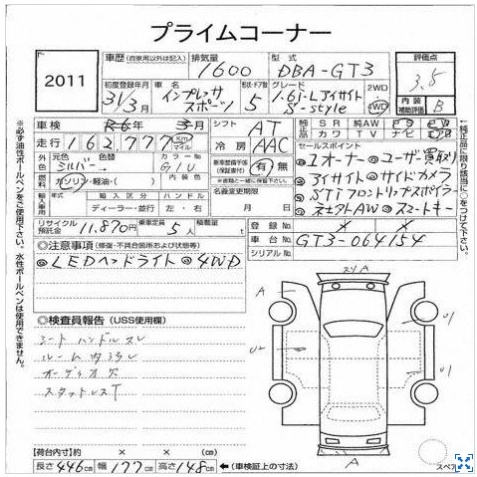 プライムコーナー
2011
車歴 (自家用以外は記入)
排気量 1600
型式 DBA-GT3
評価点 3.5
初度登録年月 31/3月
車名 インプレッサスポーツ
ドア数 5
グレード 1.6i-Lアイサイト S-style
2WD 4WD
内装補助評価 B
車検 R6年 3月
シフト AT
純正 SR 純AW PS PW
カワ TV ナビ
走行 162,777 Km マイル
冷房 AAC
セールスポイント
◎1オーナー ◎ユーザー買取り
◎アイサイト ◎サイドカメラ
◎STiフロントリップスポイラー
◎社外AW ◎スマートキー
外色 元色 シルバー 色替 カラーNo G1U
車検整備手帳(保証書付) 有・無
※直接一緒に保管して下さい。
燃料 ガソリン・軽油・( )
名義変更期限 月 日
輸入車用 年式 輸入区分 ハンドル
ディーラー・並行 左・右
リサイクル預託金 11,870円
乗車定員 5人
積載量 t
登録No
車台No GT3-064154
シリアルNo
◎注意事項 (修復・不具合箇所および状態等)
◎LEDヘッドライト ◎4WD
◎検査員報告 (USS使用欄)
シート ハンドルスレ
ルーム内ヨゴレ
オーディオ欠
スタッドレスT
スリA
A
U1
U2
U1
A
【荷台内寸】約 × × (cm)
長さ 446cm 幅 177cm 高さ 148cm ←(車検証上の寸法)
スペア
※必ず油性ボールペンをご使用下さい。水性ボールペンは使用できません。